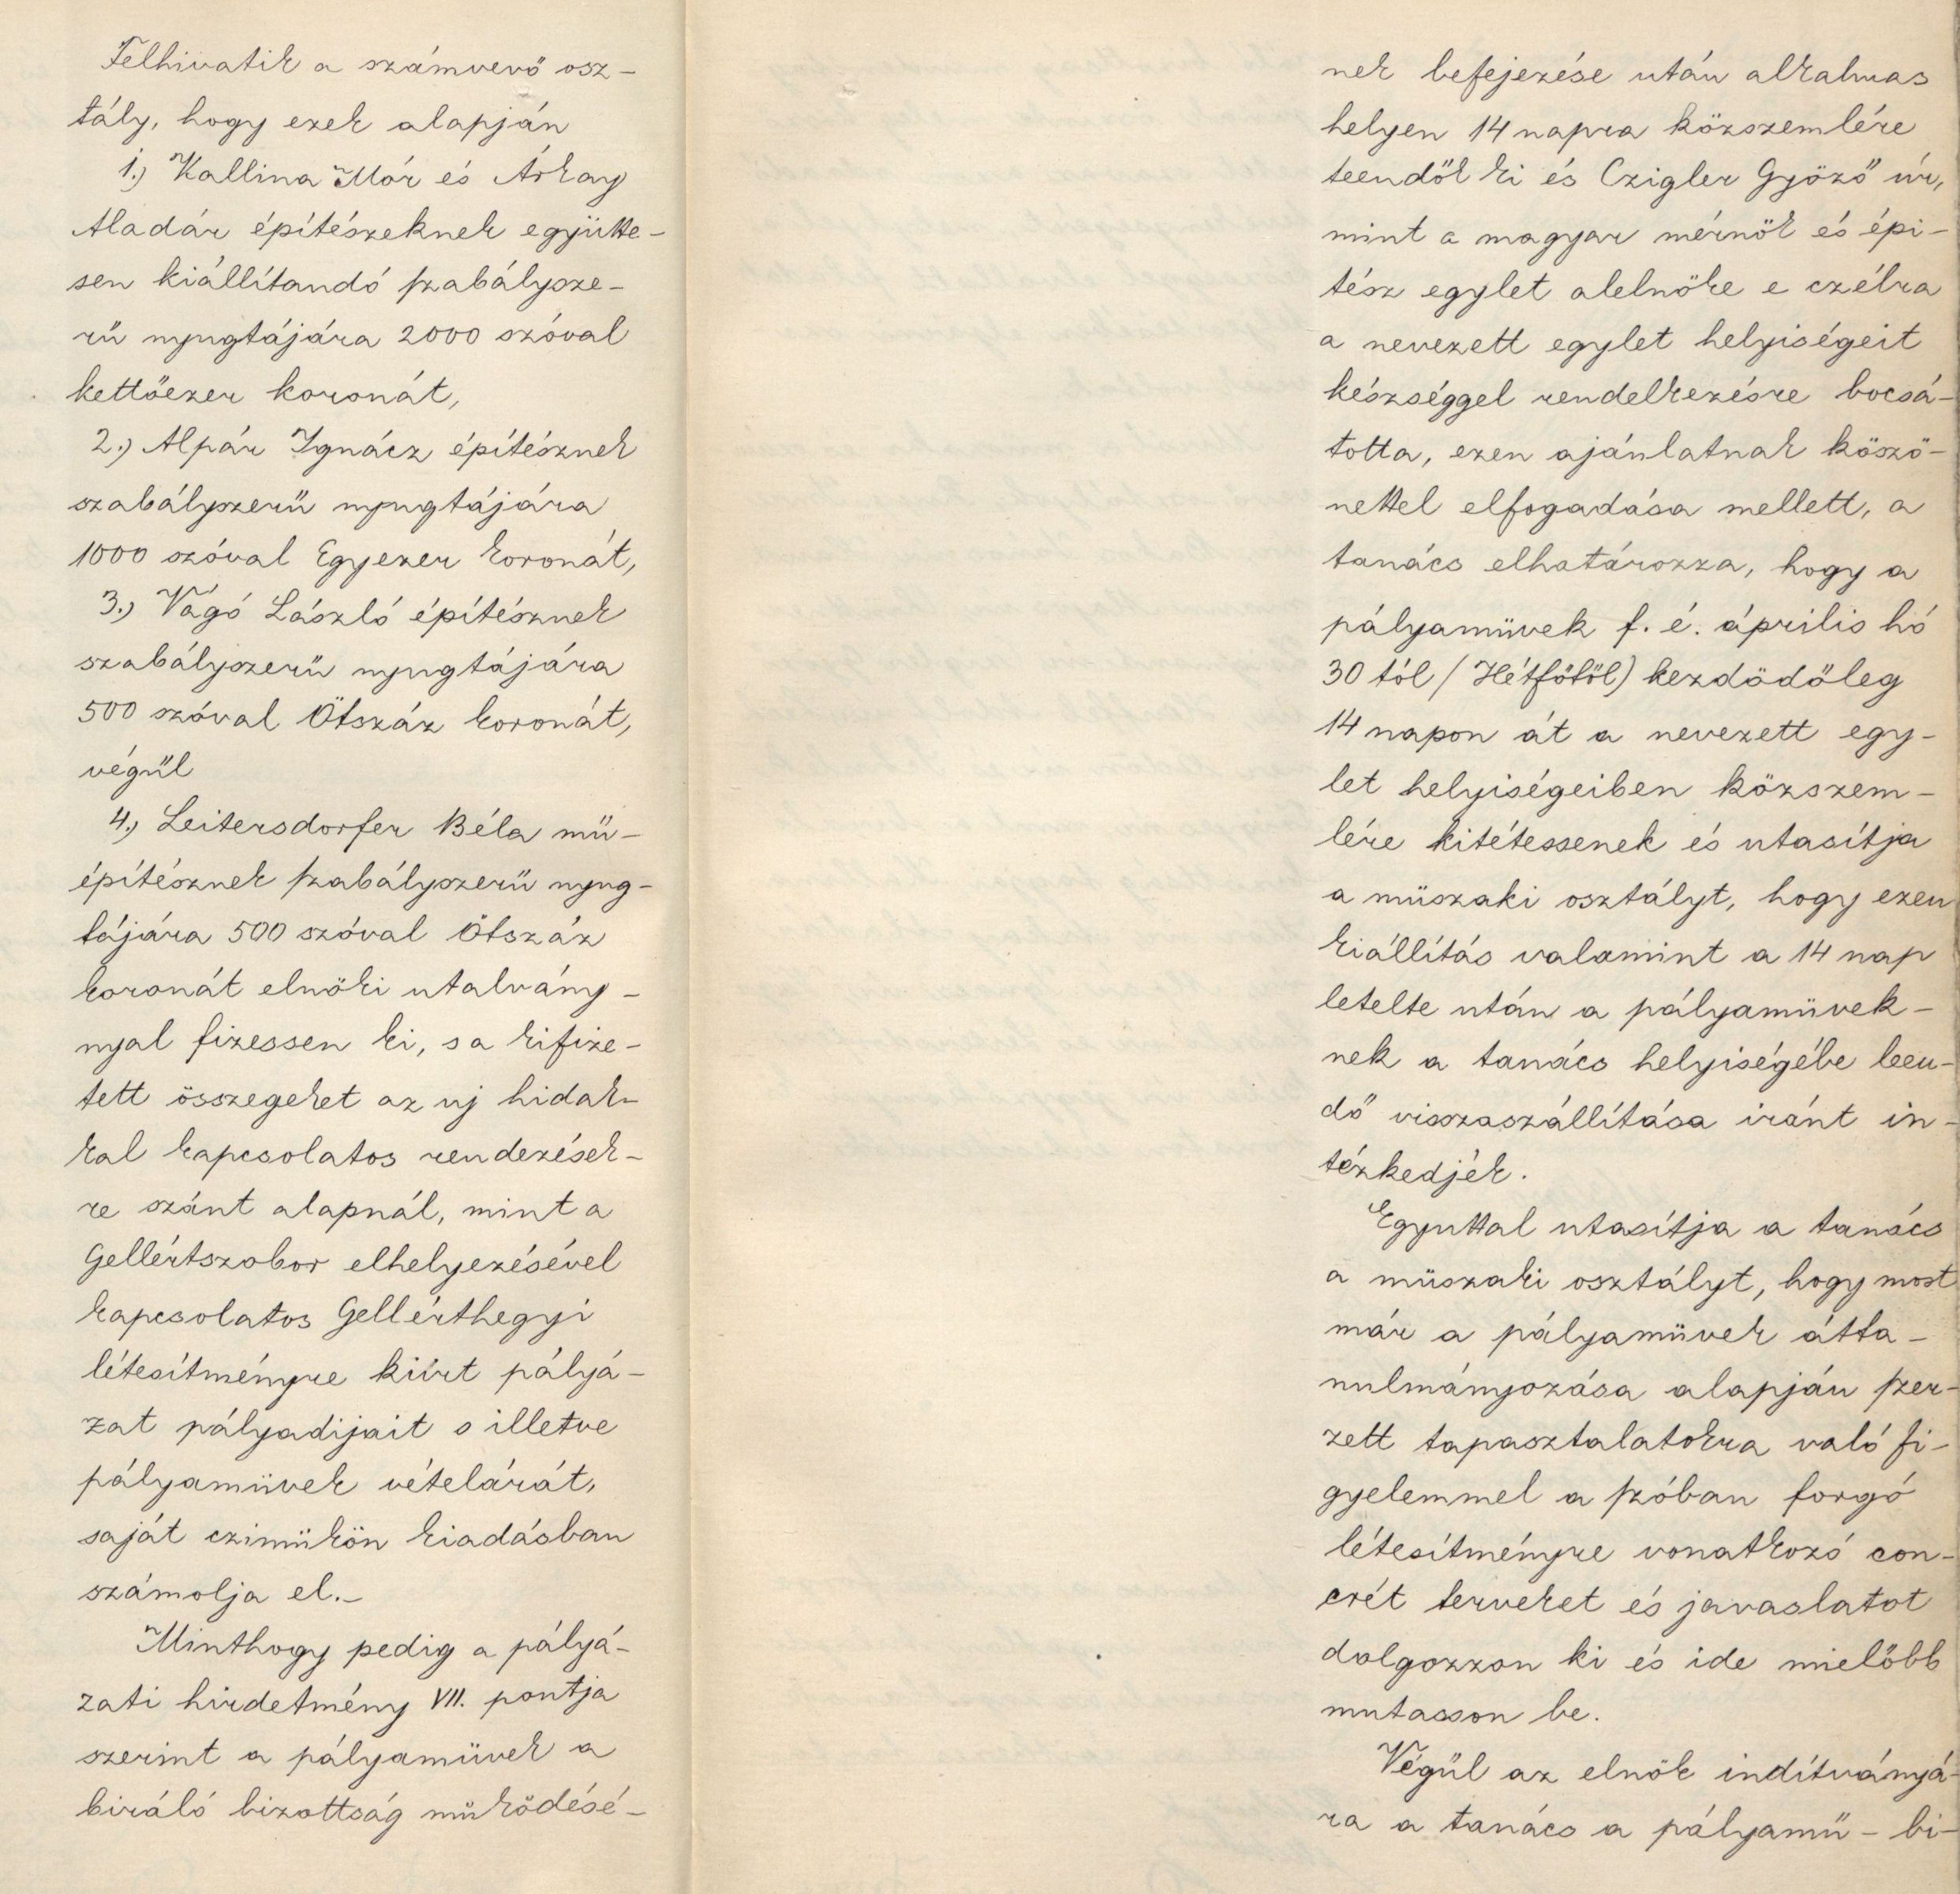 Felhivatik a számvevő osz-
tály, hogy ezek alapján
1.) Kallina Mór és Árkay
Aladár építészeknek együtte-
sen kiállítandó szabálysze-
rű nyugtájára 2000 szóval
kettőezer koronát,
2.) Alpár Ignácz építésznek
szabályszerű nyugtájára
1000 szóval Egyezer koronát,
3.) Vágó László építésznek
szabályszerű nyugtájára
500 szóval Ötszáz koronát,
végűl
4.) Leitersdorfer Béla mű-
építésznek szabályszerű nyug-
tájára 500 szóval Ötszáz
koronát elnöki utalvány-
nyal fizessen ki, s a kifize-
tett összegeket az uj hidak-
kal kapcsolatos rendezések-
re szánt alapnál, mint a
Gellértszobor elhelyezésével
kapcsolatos Gellérthegyi
létesítményre kiírt pályá-
zat pályadijait s illetve
pályaművek vételárát,
saját czimükön kiadásban
számolja el.-
Minthogy pedig a pályá-
zati hirdetmény VII. pontja
szerint a pályaművek a
biráló bizottság működésé-
nek befejezése után alkalmas
helyen 14 napra közszemlére
teendők ki és Czigler Győző úr,
mint a magyar mérnök és épi-
tész egylet alelnöke e czélra
a nevezett egylet helyiségeit
készséggel rendelkezésre bocsá-
totta, ezen ajánlatnak köszö-
nettel elfogadása mellett, a
tanács elhatározza, hogy a
pályaművek f. é. április hó
30 tól / Hétfőtől) kezdödőleg
14 napon át a nevezett egy-
let helyiségeiben közszem-
lére kitétessenek és utasítja
a műszaki osztályt, hogy ezen
kiállítás valamint a 14 nap
letelte után a pályaművek-
nek a tanács helyiségébe leen-
dő visszaszállítása iránt in-
tézkedjék.
Egyuttal utasítja a tanács
a műszaki osztályt, hogy most
már a pályaművek átta-
nulmányozása alapján szer-
zett tapasztalatokra való fi-
gyelemmel a szóban forgó
létesítményre vonatkozó con-
crét terveket és javaslatot
dolgozzon ki és ide mielőbb
mutasson be.
Végűl az elnök indítványá-
ra a tanács a pályamű-bi-